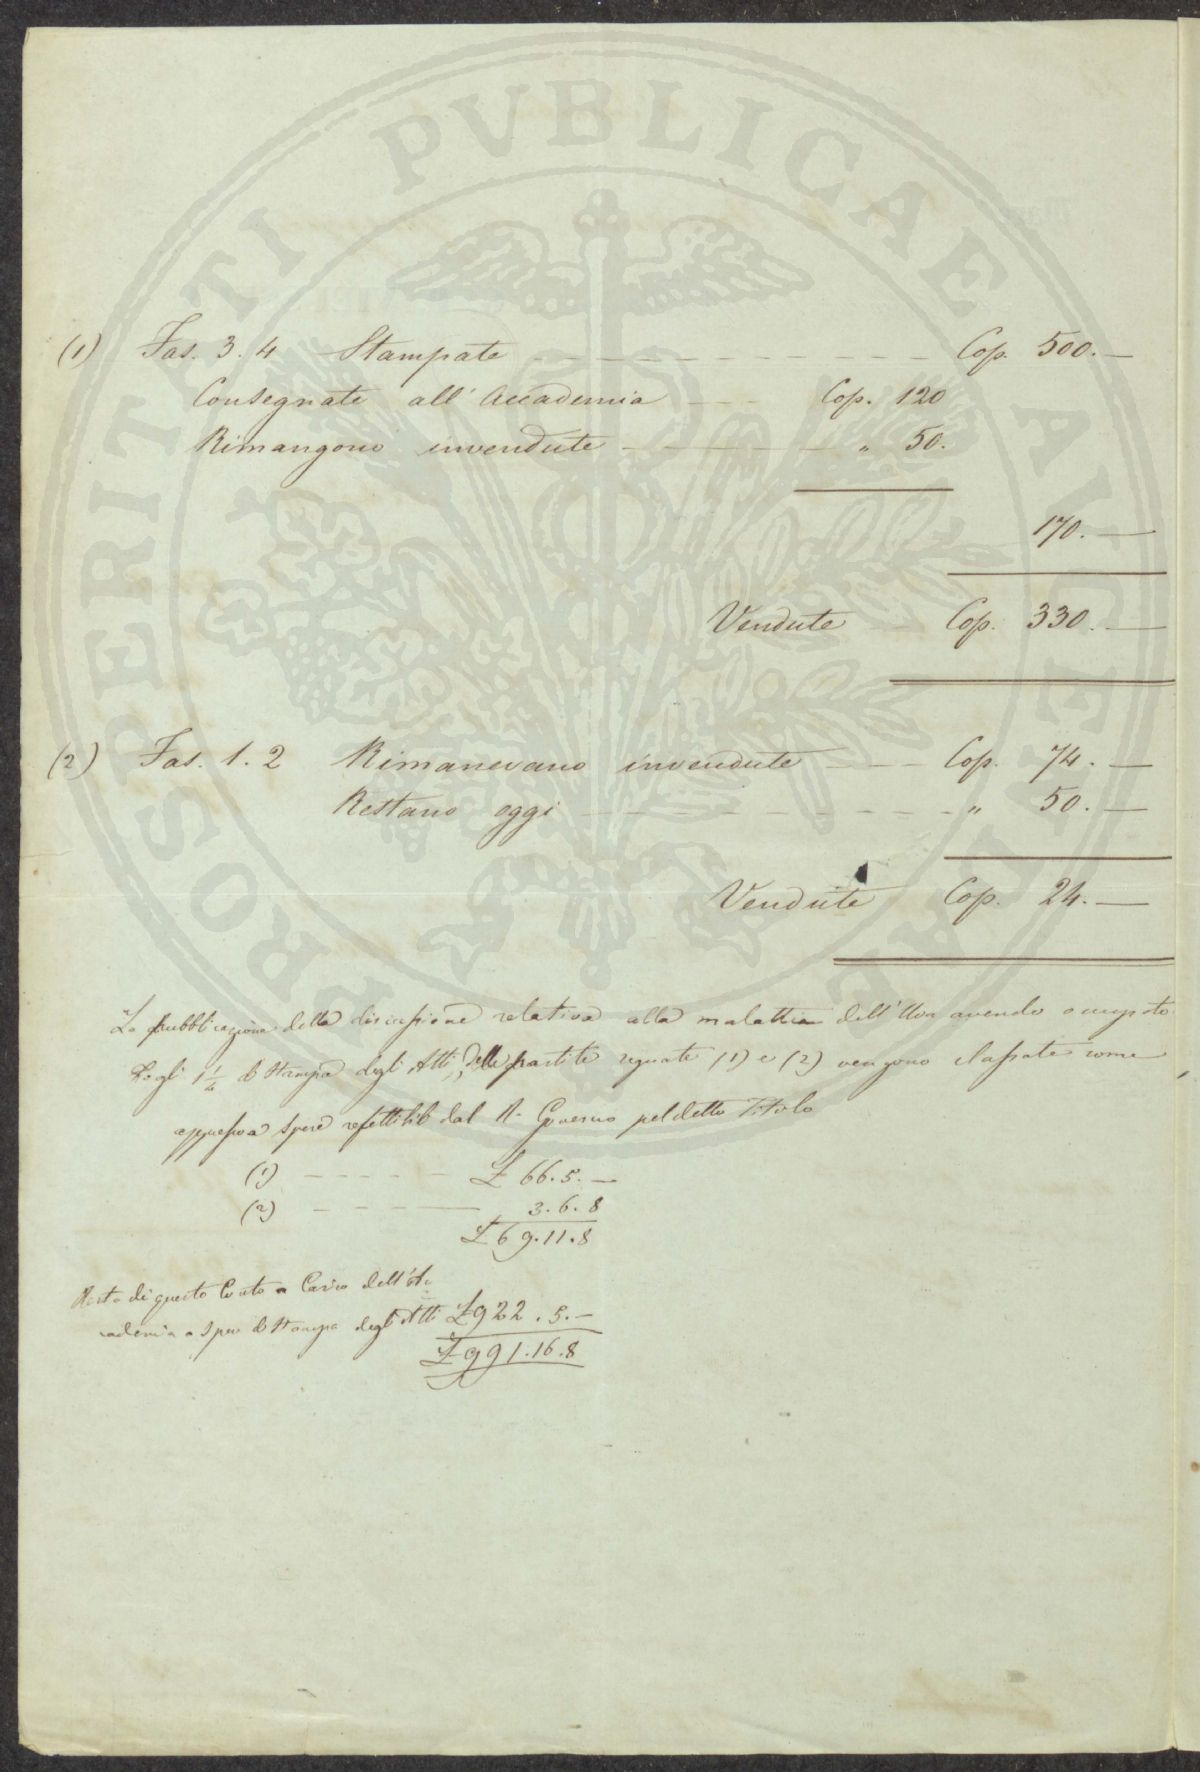 PROSPERITATI PVBLICAE AVGENDAE
(1) Fas. 3. 4 Stampate Cop. 500.
Consegnate all' Accademia Cop. 120
Rimangono invendute " 50.
170.
Vendute Cop. 330.
(2) Fas. 1. 2 Rimanevano invendute Cop. 74.
Restano oggi " 50.
Vendute Cop. 24.
La pubblicazione della discussione relativa alla malattia dell' Uva avendo occupato
Fogli 1 1/4 di Stampa degli Atti, delle partite segnate (1) e (2) vengono come
appresso spese dal R. Governo pel detto Titolo
(1) £ 66. 5. —
(2) 3. 6. 8
£ 69. 11. 8
Resta di questo Conto a Carico dell' Ac
cademia a Spese di Stampa degli Atti £ 922. 5. —
£ 991. 16. 8